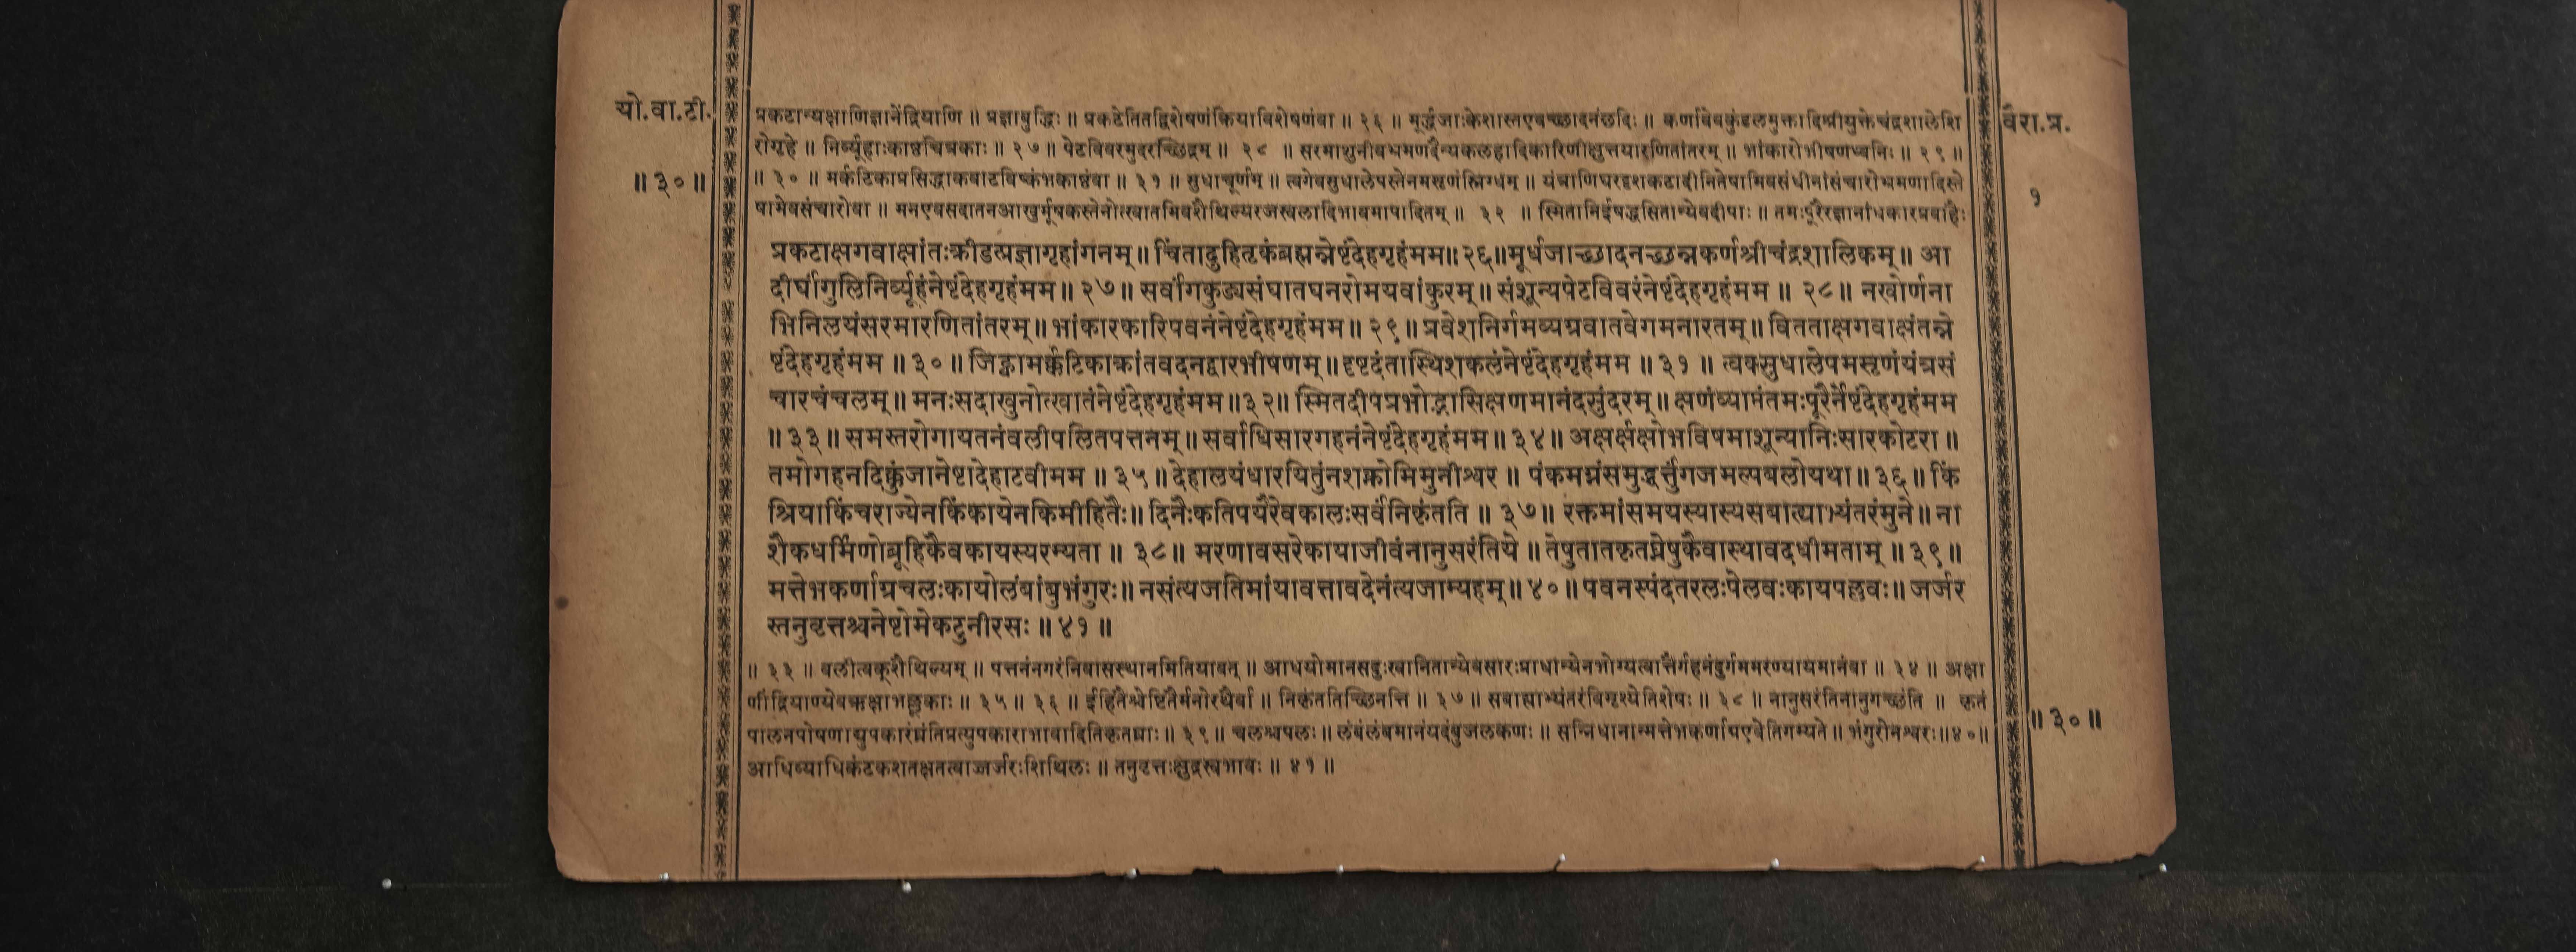 यो.वा.टी.
॥३०॥
प्रकटान्यक्षाणिज्ञानेंद्रियाणि ॥ प्रज्ञाबुद्धिः ॥ प्रकटेतितद्विशेषणंक्रियाविशेषणंवा ॥ २६ ॥ मूर्द्धजाःकेशास्तएवच्छादनंछदिः ॥ कर्णावेवकुंडलमुक्तादिश्रीयुक्तेचंद्रशालेशि
रोगृहे ॥ निर्व्यूहाःकाष्ठचित्रकाः ॥ २७ ॥ पेटविवरमुदरच्छिद्रम् ॥ २८ ॥ सरमाशुनीवभ्रमणदैन्यकलहादिकारिणीक्षुत्तयारणितांतरम् ॥ भांकारोभीषणध्वनिः ॥ २९ ॥
॥ ३० ॥ मर्कटिकाप्रसिद्धाकवाटविष्कंभकाष्ठंवा ॥ ३१ ॥ सुधाचूर्णम् ॥ त्वगेवसुधालेपस्तेनमसृणंस्निग्धम् ॥ यंत्राणिघरट्टशकटादीनितेषामिवसंधीनांसंचारोभ्रमणादिस्ते
षामेवसंचारोवा ॥ मनएवसदातनआखुर्मूषकस्तेनोत्खातमिवशैथिल्यरजस्वलादिभावमापादितम् ॥ ३२ ॥ स्मितानिईषद्धसितान्येवदीपाः ॥ तमःपूरैरज्ञानांधकारप्रवाहैः
प्रकटाक्षगवाक्षांतःक्रीडत्प्रज्ञागृहांगनम् ॥ चिंतादुहितृकंब्रह्मन्नेष्टंदेहगृहंमम॥२६॥मूर्धजाच्छादनच्छन्नकर्णश्रीचंद्रशालिकम् ॥ आ
दीर्घांगुलिनिर्व्यूहंनेष्टंदेहगृहंमम ॥ २७ ॥ सर्वांगकुड्यसंघातघनरोमयवांकुरम् ॥ संशून्यपेटविवरंनेष्टंदेहगृहंमम ॥ २८ ॥ नखोर्णना
भिनिलयंसरमारणितांतरम् ॥ भांकारकारिपवनंनेष्टंदेहगृहंमम ॥ २९ ॥ प्रवेशनिर्गमव्यग्रवातवेगमनारतम् ॥ वितताक्षगवाक्षंतन्ने
ष्टंदेहगृहंमम ॥ ३० ॥ जिह्वामर्कटिकाक्रांतवदनद्वारभीषणम् ॥ दृष्टदंतास्थिशकलंनेष्टंदेहगृहंमम ॥ ३१ ॥ त्वक्सुधालेपमसृणंयंत्रसं
चारचंचलम् ॥ मनःसदाखुनोत्खातंनेष्टंदेहगृहंमम ॥३२॥ स्मितदीपप्रभोद्भासिक्षणमानंदसुंदरम् ॥ क्षणंव्याप्तंतमःपूरैर्नेष्टंदेहगृहंमम
॥ ३३ ॥ समस्तरोगायतनंवलीपलितपत्तनम् ॥ सर्वाधिसारगहनंनेष्टंदेहगृहंमम ॥ ३४ ॥ अक्षर्क्षक्षोभविषमाशून्यानिःसारकोटरा ॥
तमोगहनदिक्कुंजानेष्टादेहाटवीमम ॥ ३५ ॥ देहालयंधारयितुंनशक्नोमिमुनीश्वर ॥ पंकमग्नंसमुद्धर्त्तुंगजमल्पबलोयथा ॥ ३६ ॥ किं
श्रियाकिंचराज्येनकिंकायेनकिमीहितैः ॥ दिनैःकतिपयैरेवकालःसर्वंनिकृंतति ॥ ३७ ॥ रक्तमांसमयस्यास्यसबाह्याभ्यंतरंमुने ॥ ना
शैकधर्मिणोब्रूहिकैवकायस्यरम्यता ॥ ३८ ॥ मरणावसरेकायाजीवंनानुसरंतिये ॥ तेषुतातकृतघ्नेषुकैवास्थावदधीमताम् ॥ ३९ ॥
मत्तेभकर्णाग्रचलःकायोलंबांबुभंगुरः ॥ नसंत्यजतिमांयावत्तावदेनंत्यजाम्यहम् ॥ ४० ॥ पवनस्पंदतरलःपेलवःकायपल्लवः ॥ जर्जर
स्तनुवृत्तश्चनेष्टोमेकटुनीरसः ॥ ४१ ॥
॥ ३३ ॥ वलीत्वक्शैथिल्यम् ॥ पत्तनंनगरंनिवासस्थानमितियावत् ॥ आधयोमानसदुःखानितान्येवसारःप्राधान्येनभोग्यत्वात्तैर्गहनंदुर्गममरण्यायमानंवा ॥ ३४ ॥ अक्षा
णींद्रियाण्येवऋक्षाभल्लूकाः ॥ ३५ ॥ ३६ ॥ ईहितैश्चेष्टितैर्मनोरथैर्वा ॥ निकृंततिच्छिनत्ति ॥ ३७ ॥ सबाह्याभ्यंतरंविमृश्येतिशेषः ॥ ३८ ॥ नानुसरंतिनानुगच्छंति ॥ कृतं
पालनपोषणाद्युपकारंघ्नंतिप्रत्युपकाराभावादितिकृतघ्नाः ॥ ३९ ॥ चलश्चपलः ॥ लंबंलंबमानंयदंबुजलकणः ॥ सन्निधानान्मत्तेभकर्णाग्रएवेतिगम्यते ॥ भंगुरोनश्वरः॥४०॥
आधिव्याधिकंटकशतक्षतत्वाज्जर्जरःशिथिलः ॥ तनुवृत्तःक्षुद्रस्वभावः ॥ ४१ ॥
वैरा.प्र.
१
॥ ३० ॥